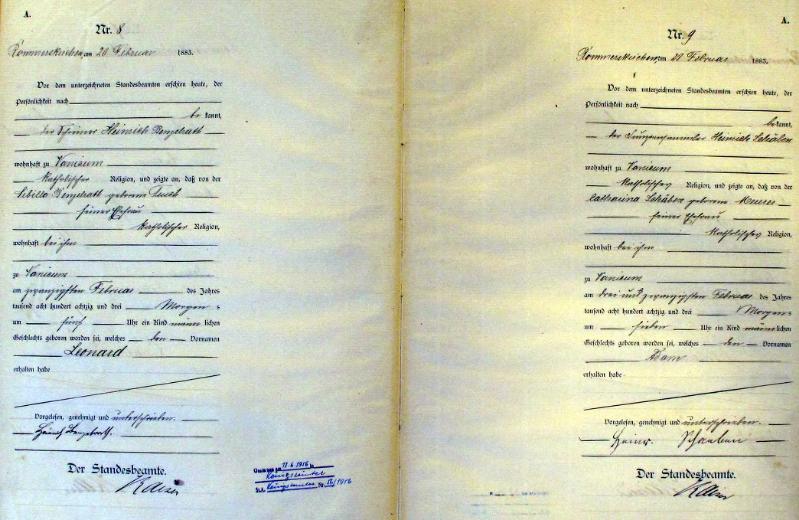 A.
Nr. 8
Rommerskirchen, am 20 Februar 1883.
Vor dem unterzeichneten Standesbeamten erschien heute, der
Persönlichkeit nach
be kannt,
der Heinrich
wohnhaft zu Vanikum
Katholischer Religion, und zeigte an, daß von der
Sibilla geborenen
seiner Ehefrau
Katholischer Religion,
wohnhaft bei ihm
zu Vanikum
am zwanzigsten Februar des Jahres
tausend acht hundert achtzig und drei Morgens
um fünf Uhr ein Kind männlichen
Geschlechts geboren worden sei, welches den Vornamen
Leonard
erhalten habe
Vorgelesen, genehmigt und unterschrieben.
Der Standesbeamte.
Kaiser
11.6.1916
Königswinter
Königswinter Nr. 12/1916
A.
Nr. 9
Rommerskirchen, am Februar 1883.
Vor dem unterzeichneten Standesbeamten erschien heute, der
Persönlichkeit nach
bekannt,
der Lumpensammler Heinrich
wohnhaft zu Vanikum
Katholischer Religion, und zeigte an, daß von der
Catharina geborenen Meurer
seiner Ehefrau
Katholischer Religion,
wohnhaft bei ihm
zu Vanikum
am drei und zwanzigsten Februar des Jahres
tausend acht hundert achtzig und drei Morgens
um sieben Uhr ein Kind männlichen
Geschlechts geboren worden sei, welches den Vornamen
Adam
erhalten habe
Vorgelesen, genehmigt und unterschrieben.
Heinr.
Der Standesbeamte.
Kaiser